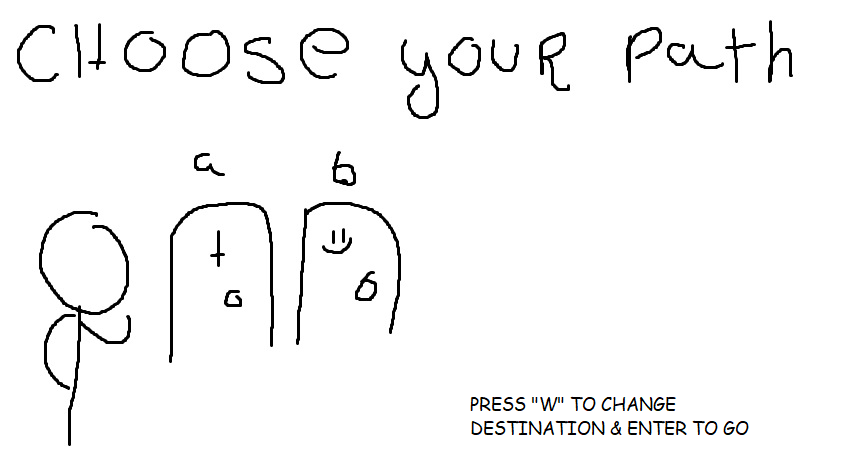 CHOOSE yOUR Path
a b
PRESS "W" TO CHANGE
DESTINATION & ENTER TO GO